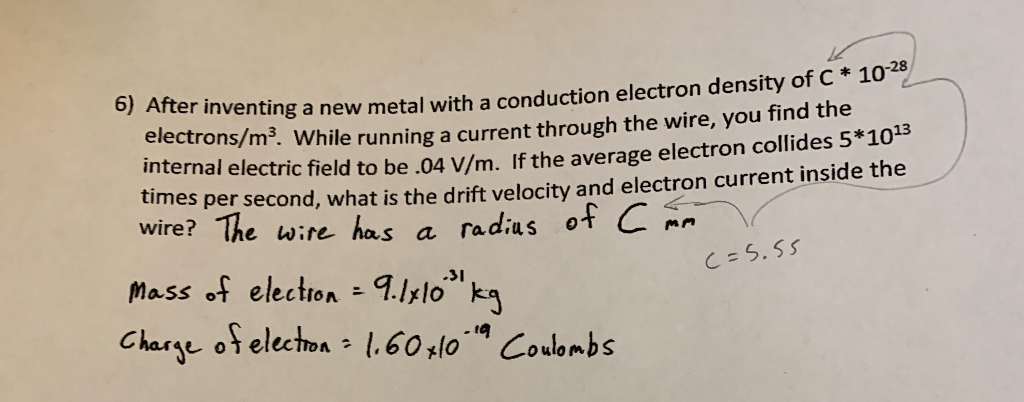 6) After inventing a new metal with a conduction electron density of C * 10⁻²⁸
electrons/m³. While running a current through the wire, you find the
internal electric field to be .04 V/m. If the average electron collides 5*10¹³
times per second, what is the drift velocity and electron current inside the
wire? The wire has a radius of C mm
C = 5.55
Mass of electron = 9.1x10⁻³¹ kg
Charge of electron = 1.60x10⁻¹⁹ Coulombs